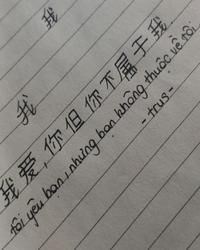 我
我
我爱,你但你不属于我.
Tôi yêu bạn, nhưng bạn không thuộc về tôi
- trus -